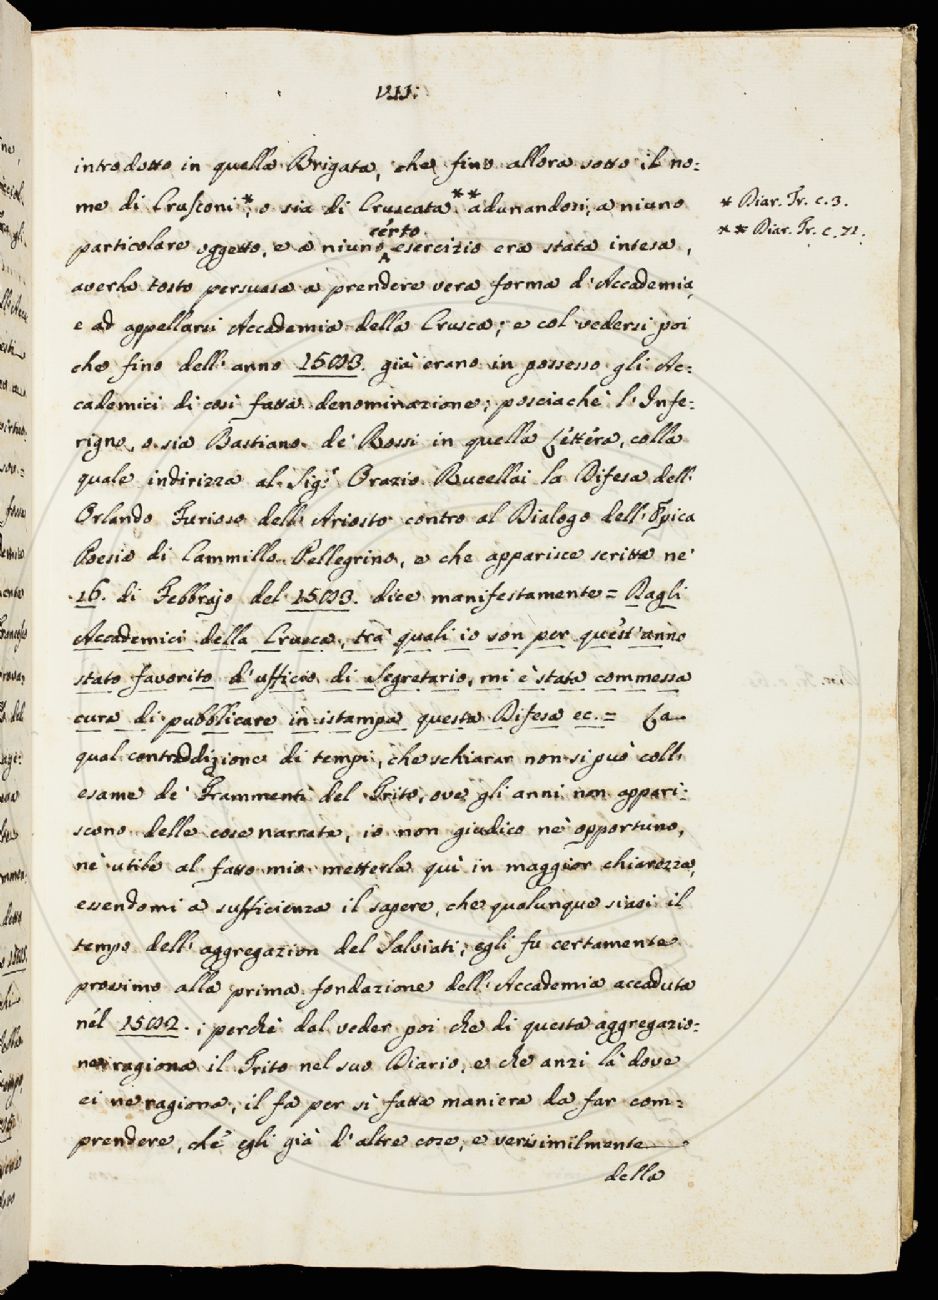 VII:
introdotto in quella Brigata, che fino allora sotto il no=
me di Crusconi*, o sia di Cruscata** adunandosi, a niuno
* Diar. Tr. c. 3.
** Diar. Tr. c. 71.
particolare oggetto, e a niuno certo esercizio era stata intesa,
averla tosto persuasa a prendere vera forma d'Accademia,
e ad appellarsi Accademia della Crusca; e col vedersi poi
che fino dell'anno 1583. già erano in possesso gli Ac=
cademici di così fatta denominazione; posciachè l'Infe=
rigno, o sia Bastiano de' Rossi in quella Lettera, colla
quale indirizza al Sig.r Orazio Rucellai la Difesa dell'
Orlando Furioso dell'Ariosto contro al Dialogo dell'Epica
Poesia di Cammillo Pellegrino, e che apparisce scritta ne'
16. di Febbrajo del 1583. dice manifestamente = Dagli
Accademici della Crusca, tra' quali io son per quest'anno
stato favorito d'ufficio di Segretario, mi è stata commessa
cura di pubblicare in istampa questa Difesa ec. = La
qual contraddizione di tempi, che schiarar non si può coll'
esame de' Frammenti del Trito, ove gli anni non appari=
scono delle cose narrate, io non giudico nè opportuno,
nè utile al fatto mio metterla quì in maggior chiarezza,
essendomi a sufficienza il sapere, che qualunque siasi il
tempo dell'aggregazion del Salviati; egli fu certamente
prossimo alla prima fondazione dell'Accademia accaduta
nel 1582.; perchè dal veder poi che di questa aggregazio=
ne ragiona il Trito nel suo Diario, e che anzi là dove
ei ne ragiona, il fa per sì fatta maniera da far com=
prendere, chè egli già d'altre cose, e verisimilmente
della